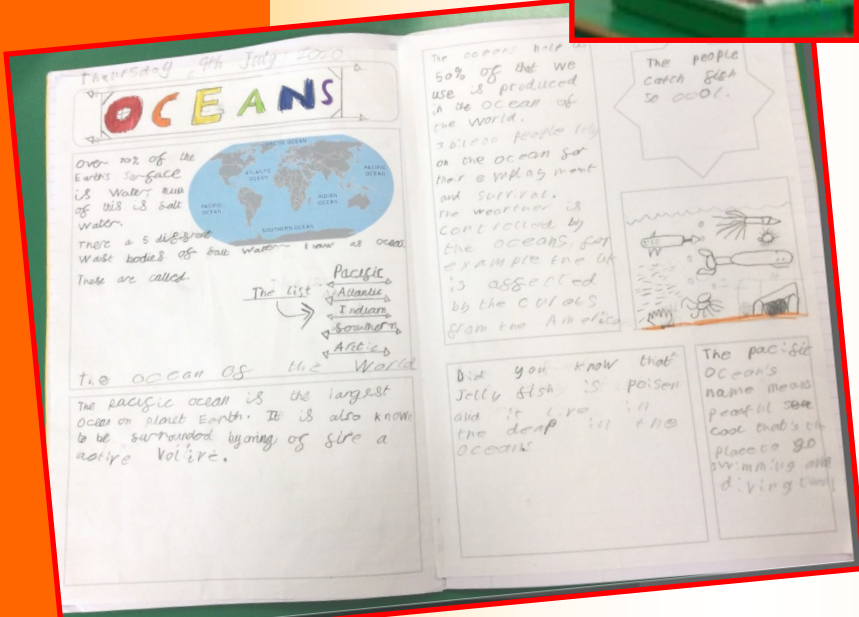 Thaursday 9th July 2020
OCEANS
Over 70% of the
Earth's Surface
is Water
of this is Salt
water.
There a 5 different
wast bodies of salt water know as ocean
These are called.
ARCTIC OCEAN
ATLANTIC OCEAN
PACIFIC OCEAN
PACIFIC OCEAN
INDIAN OCEAN
SOUTHERN OCEAN
The list
Pacific
Atlantic
Indian
Southern
Arctic
The ocean of the World
The pacific ocean is the largest
Ocean on planet Earth. It is also known
to be surrounded by a ring of fire a
active
The oceans help
50% of that we
use is produced
in the ocean of
the world.
3 people rely
on the ocean for
their employment
and survival.
The weather is
controlled by
the oceans, for
example the UK
is affected
by the
from the America
The people
catch fish
so cool.
Did you know that
Jelly fish is poisen
and it live in
the deap in the
oceans
The pacific
Ocean's
name means
cool that's th
place to go
swimming and
diving